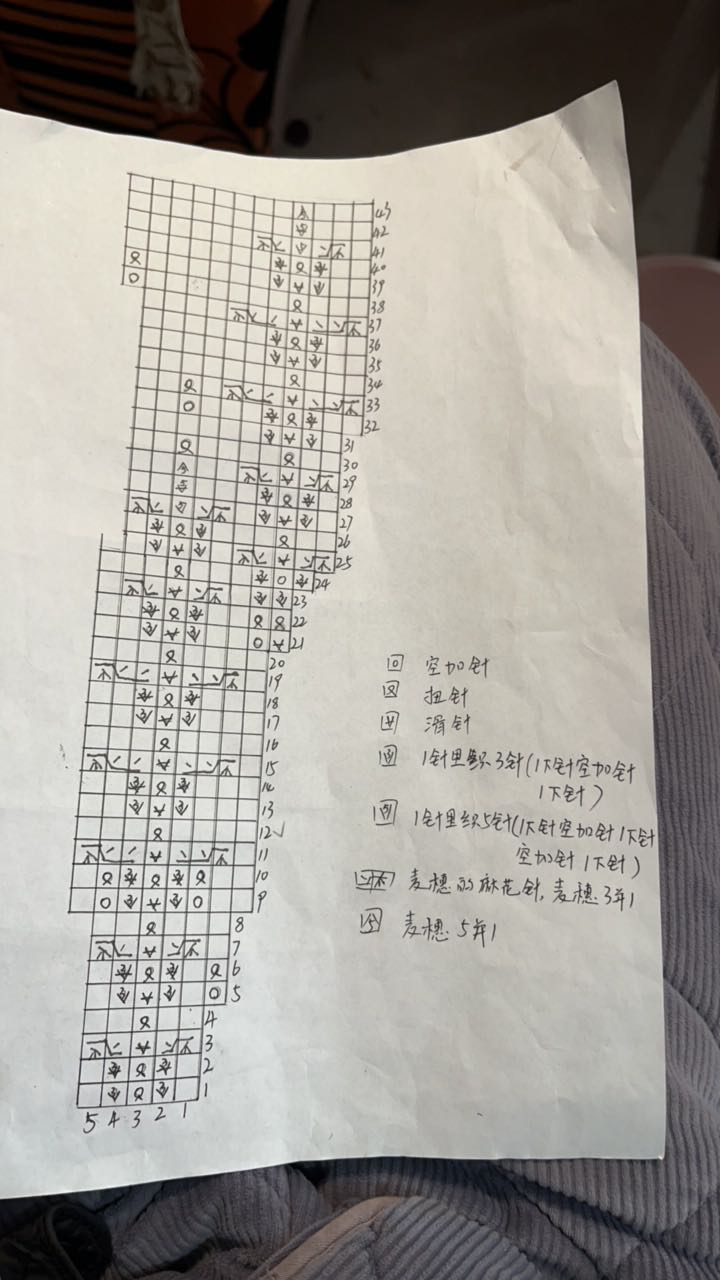 43
42
41
40
39
38
37
36
35
34
33
32
31
30
29
28
27
26
25
24
23
22
21
20
19
18
17
16
15
14
13
12✓
11
10
9
8
7
6
5
4
3
2
1
5 4 3 2 1
空加针
扭针
滑针
1针里织3针(1下针空加针
1下针)
1针里织5针(1下针空加针1下针
空加针1下针)
麦穗的麻花针,麦穗3并1
麦穗5并1